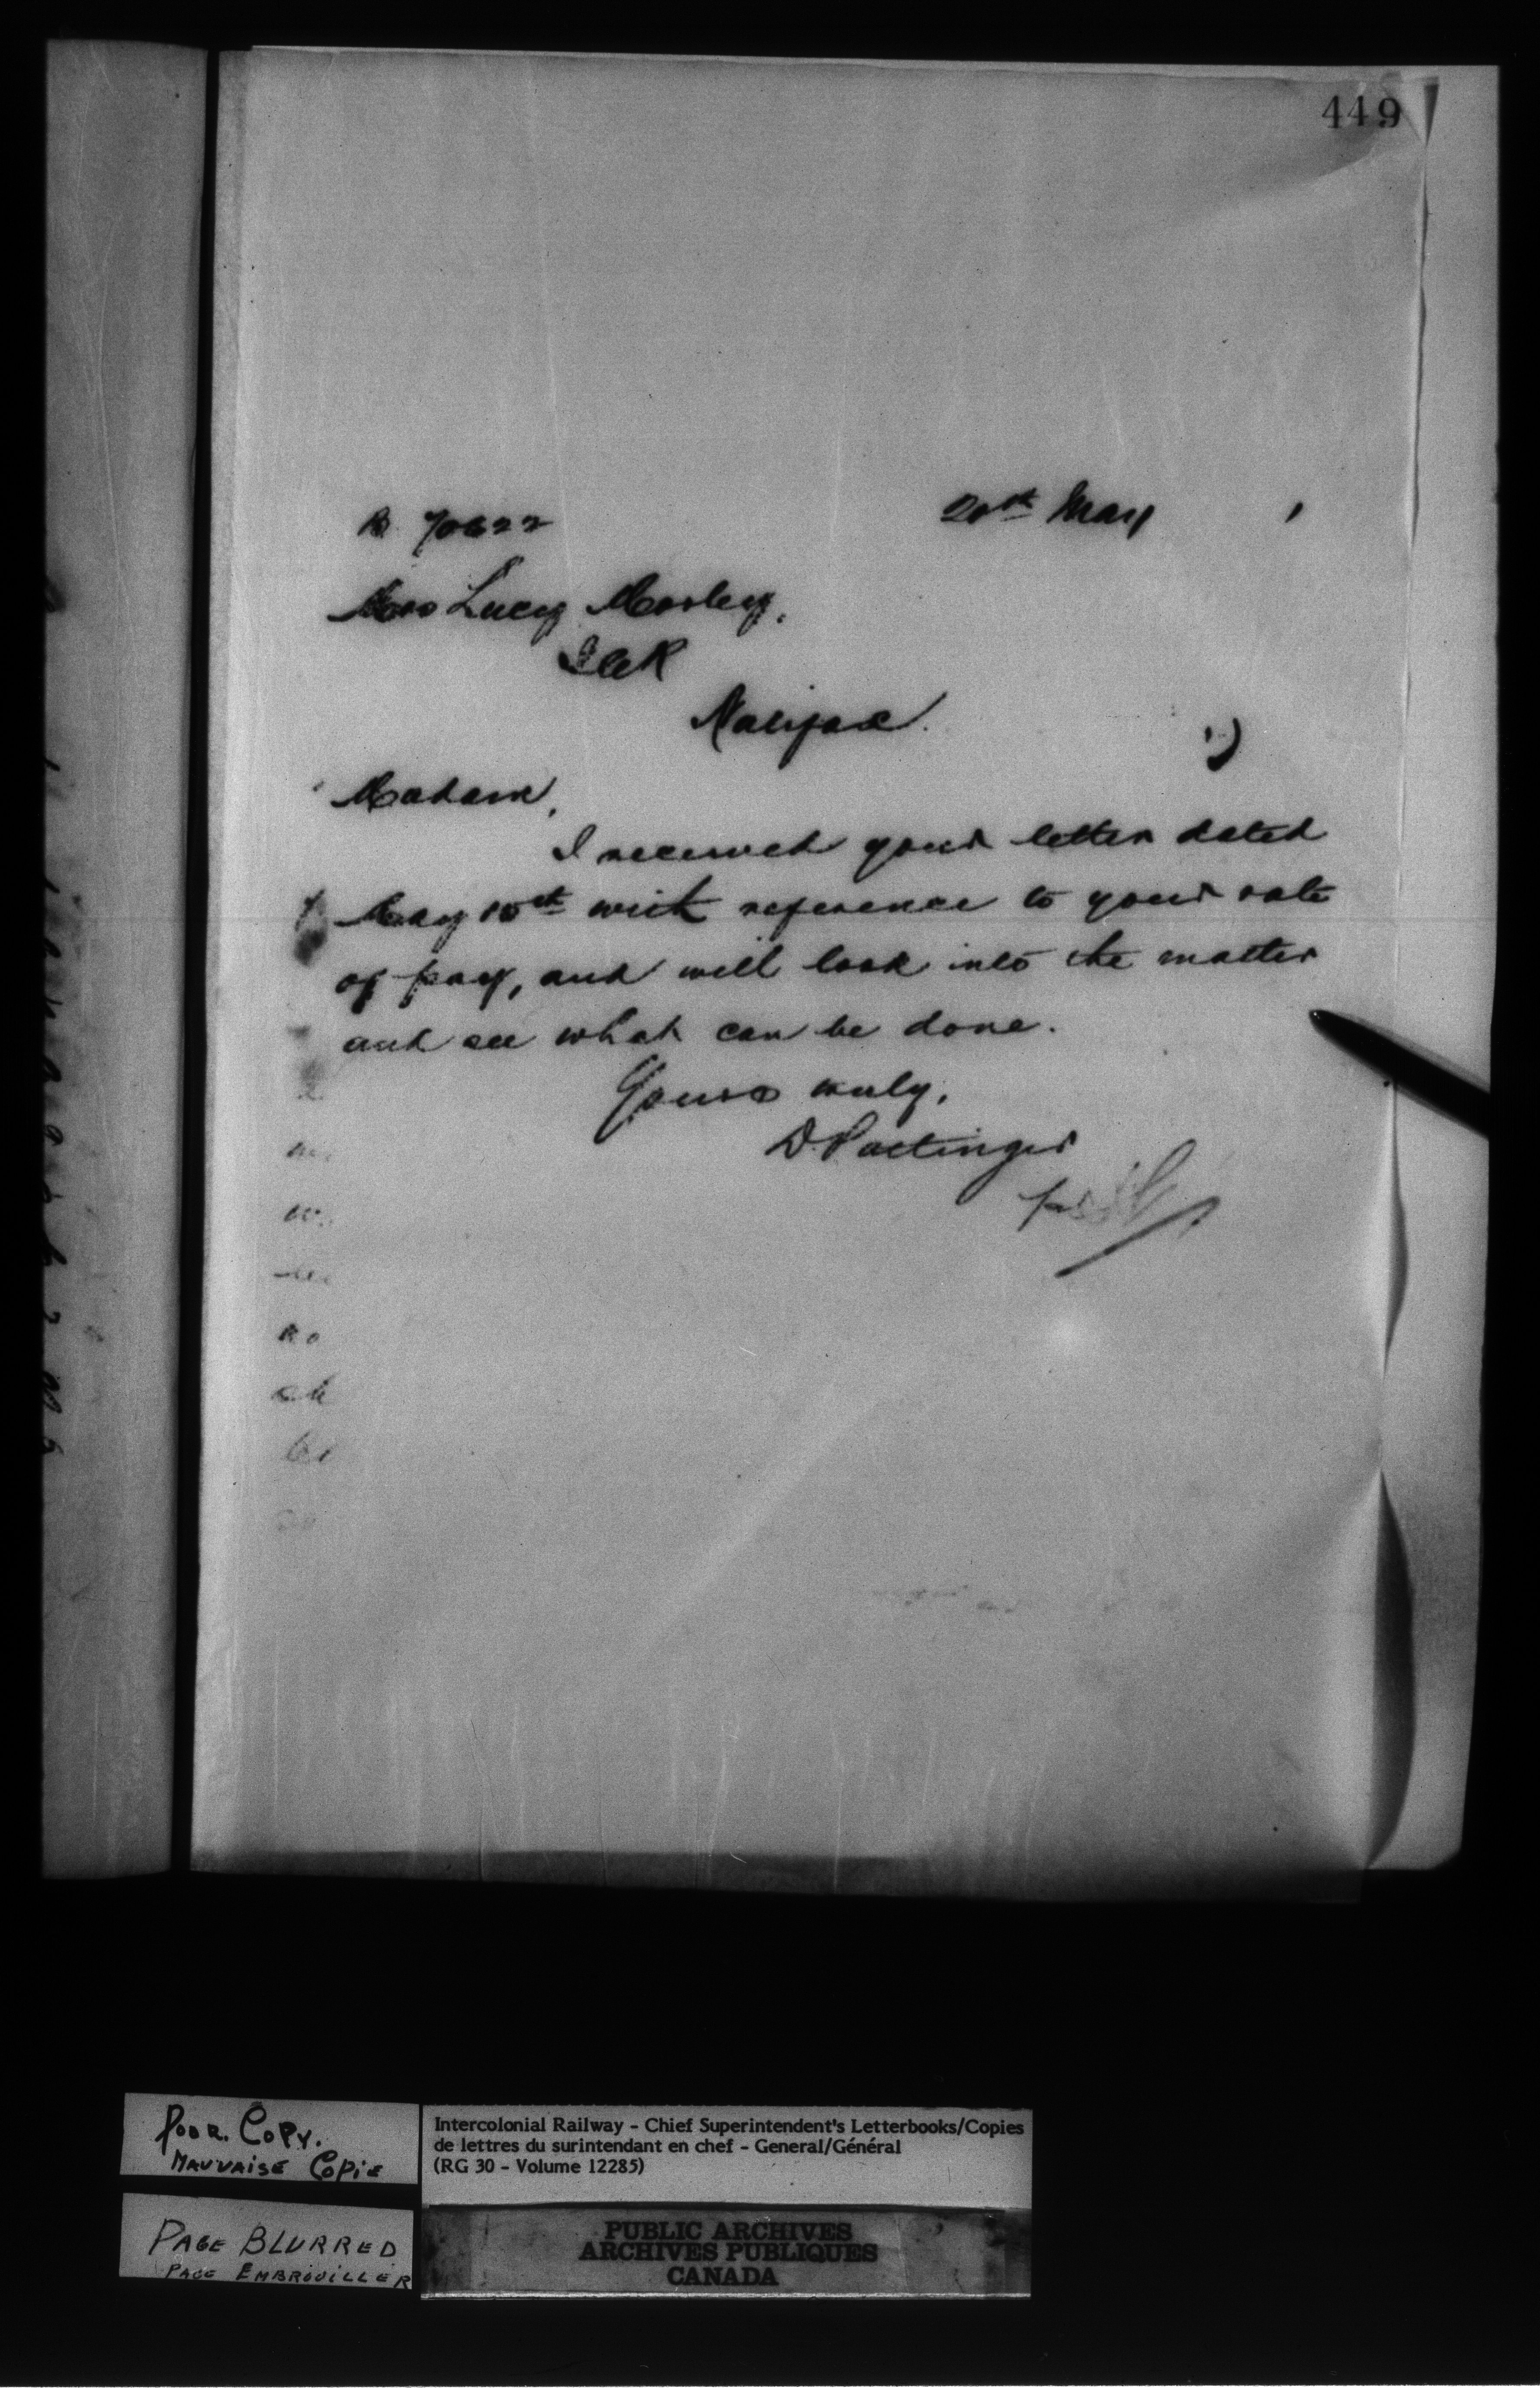 449
R 70622
20th May
Mrs Lucy Morley,
ICR
Halifax.
Madam,
I received your letter dated
May 15th with reference to your rate
of pay, and will look into the matter
and see what can be done.
Yours truly,
D. Pottinger
Poor. Copy.
Mauvaise Copie
Intercolonial Railway - Chief Superintendent's Letterbooks/Copies
de lettres du surintendant en chef - General/Général
(RG 30 - Volume 12285)
PAGE BLURRED
PAGE EMBROUILLER
PUBLIC ARCHIVES
ARCHIVES PUBLIQUES
CANADA